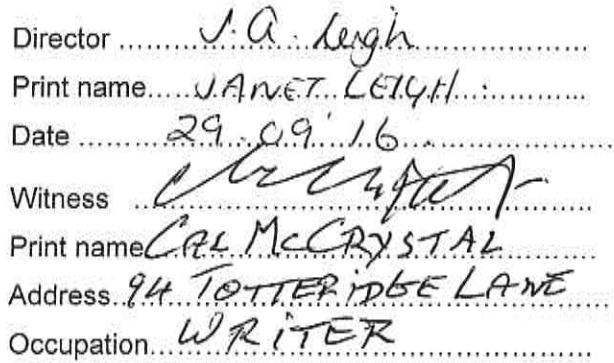 Director J.A. Leigh
Print name JANET LEIGH
Date 29.09.16
Witness
Print name CAL McCRYSTAL
Address 94 TOTTERIDGE LANE
Occupation WRITER